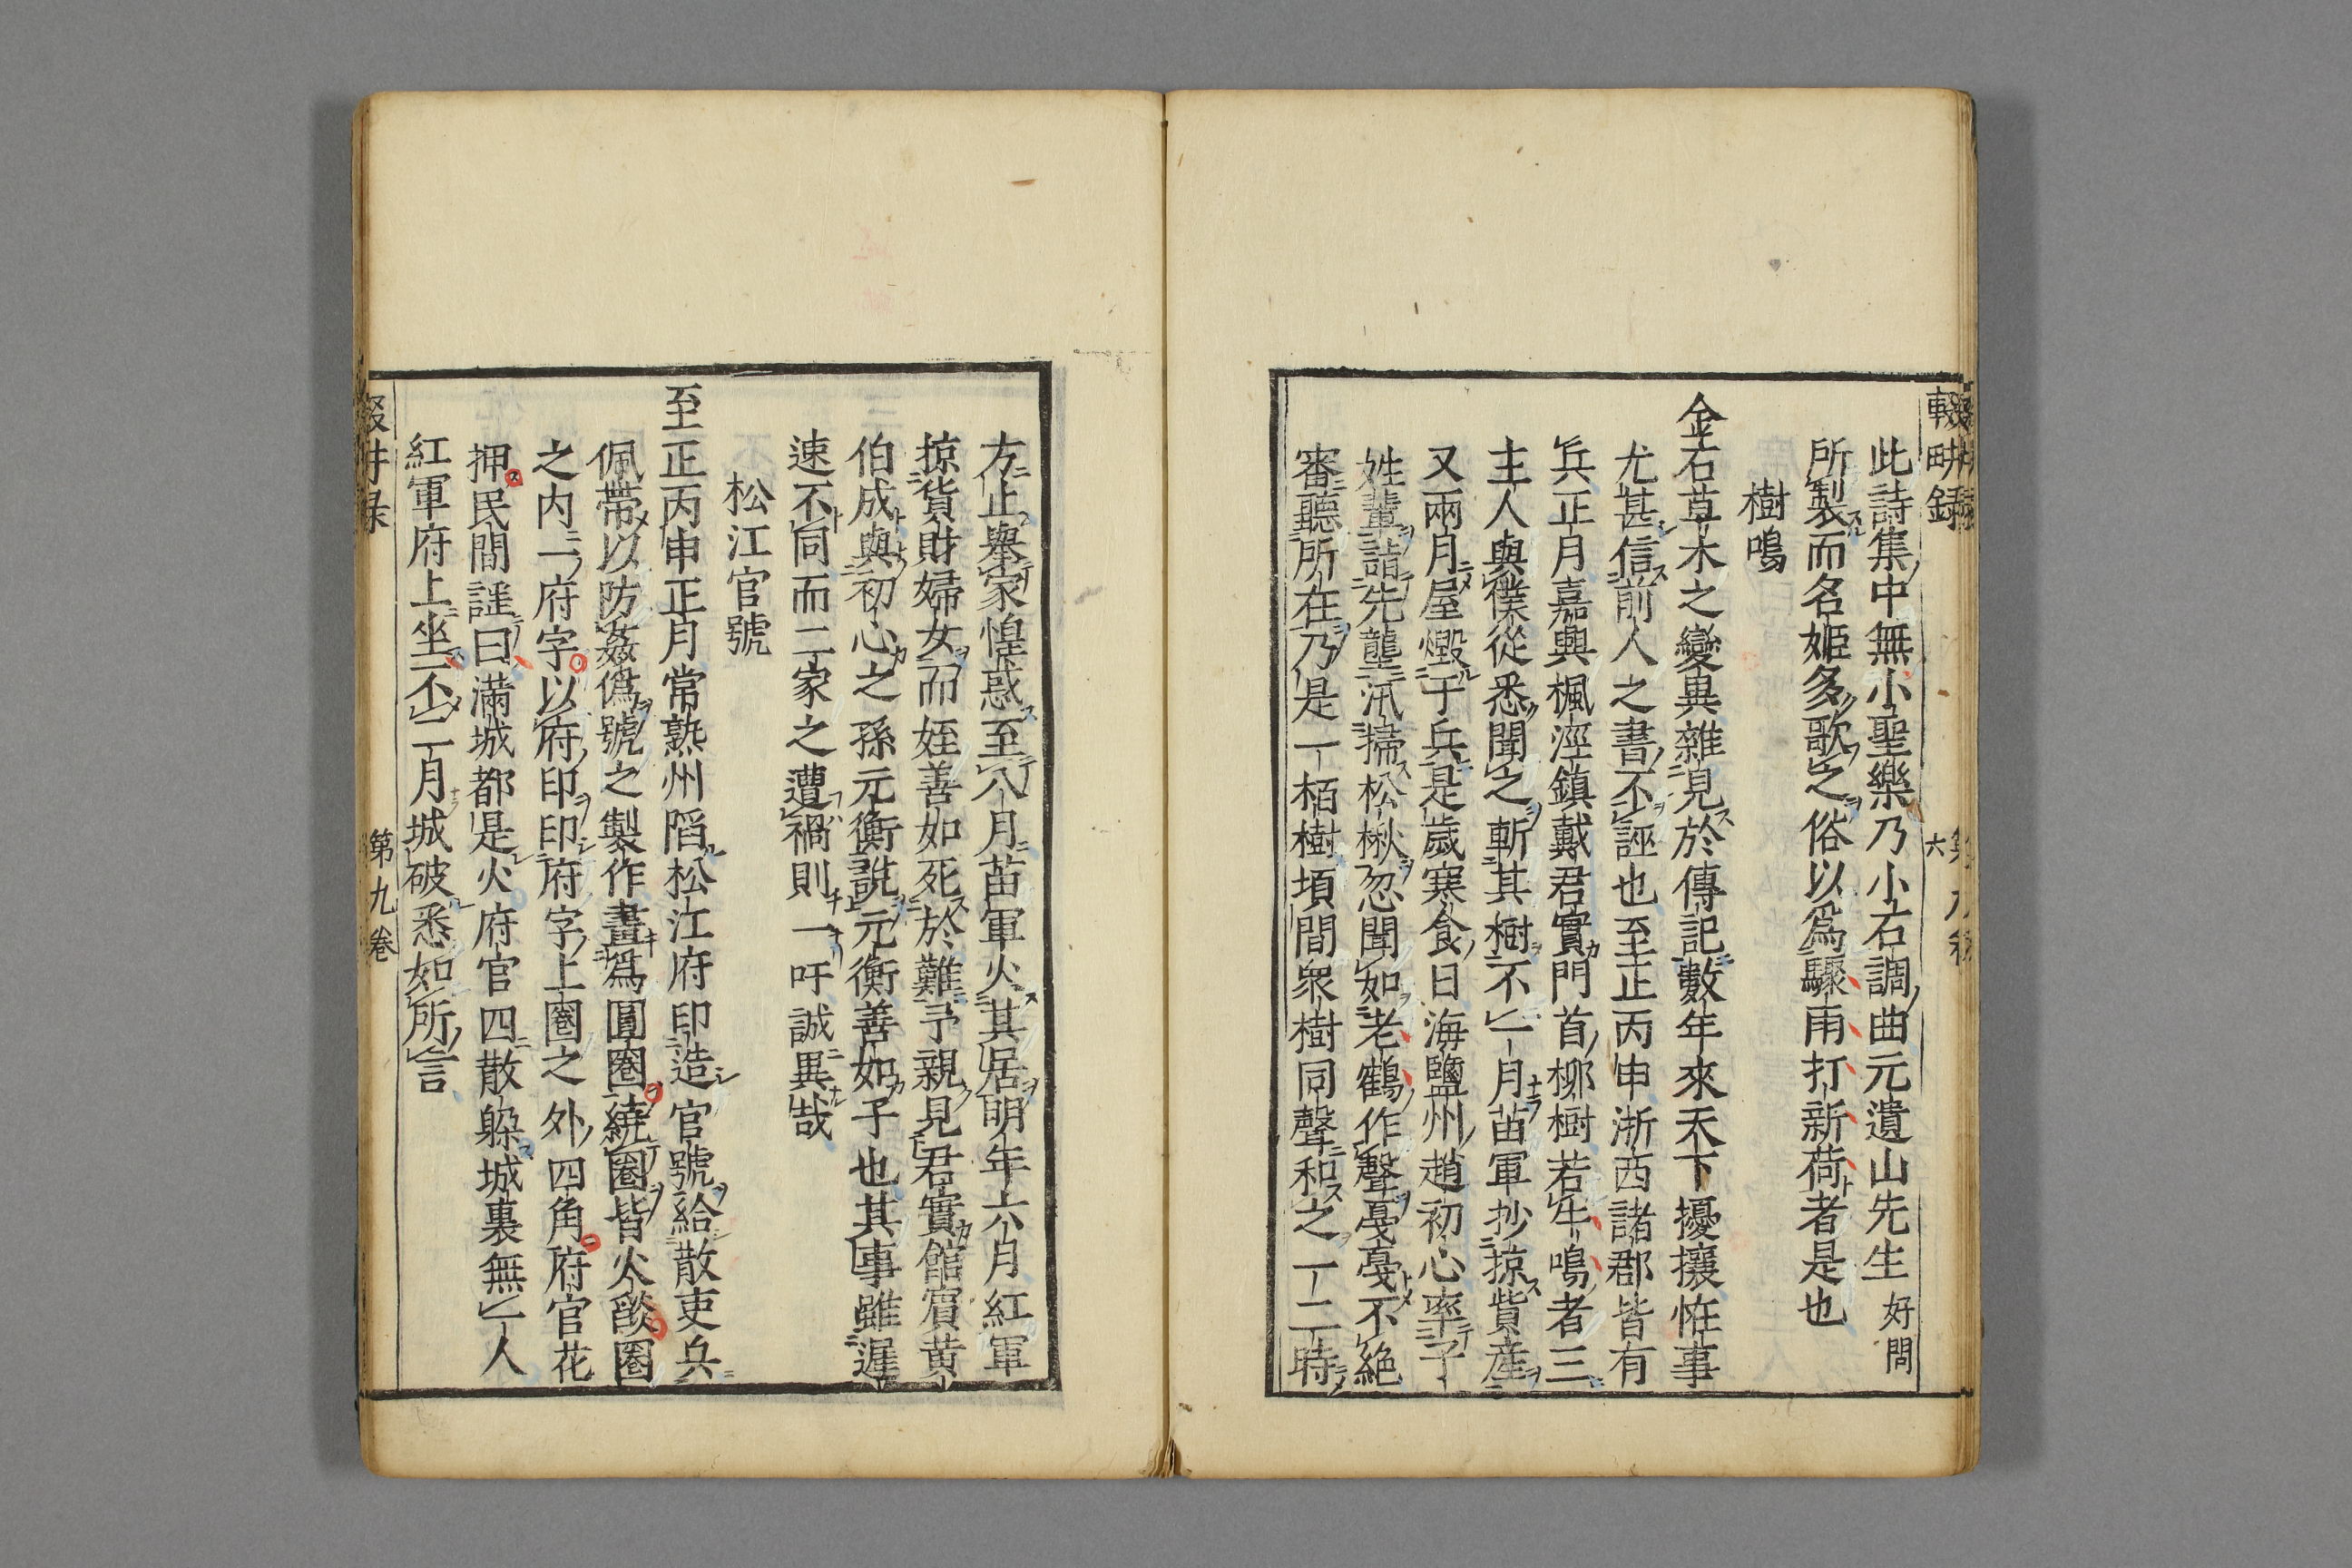 輟畊録
六
此詩集中無小聖樂乃小石調曲元遺山先生好問
所製而名姬多歌之俗以爲驟雨打新荷者是也
樹鳴
金石草木之變異雜見於傳記數年來天下擾攘恠事
尤甚信前人之書不誣也至正丙申浙西諸郡皆有
兵正月嘉興楓涇鎮戴君實門首柳樹若牛鳴者三
主人與僕從悉聞之斬其樹不一月苗軍抄掠貲產
又兩月屋燬于兵是歲寒食日海鹽州趙初心率子
姓輩詣先壟汛掃松楸忽聞如老鶴作聲戞戞不絶
審聽所在乃是一栢樹頃間衆樹同聲和之一二時
方止舉家惶惑至八月苗軍火其居明年六月紅軍
掠貨財婦女而姪善如死於難予親見君實館賔黄
伯成與初心之孫元衡說元衡善如子也其事雖遲
速不同而二家之遭禍則一吁誠異哉
松江官號
至正丙申正月常熟州䧟松江府印造官號給散吏兵
佩帶以防姦僞號之製作畫爲圓圈繞圈皆火燄圈
之内一府字以府印印府字上圈之外四角府官花
押民間謡曰滿城都是火府官四散躱城裏無一人
紅軍府上坐不一月城破悉如所言
第九卷